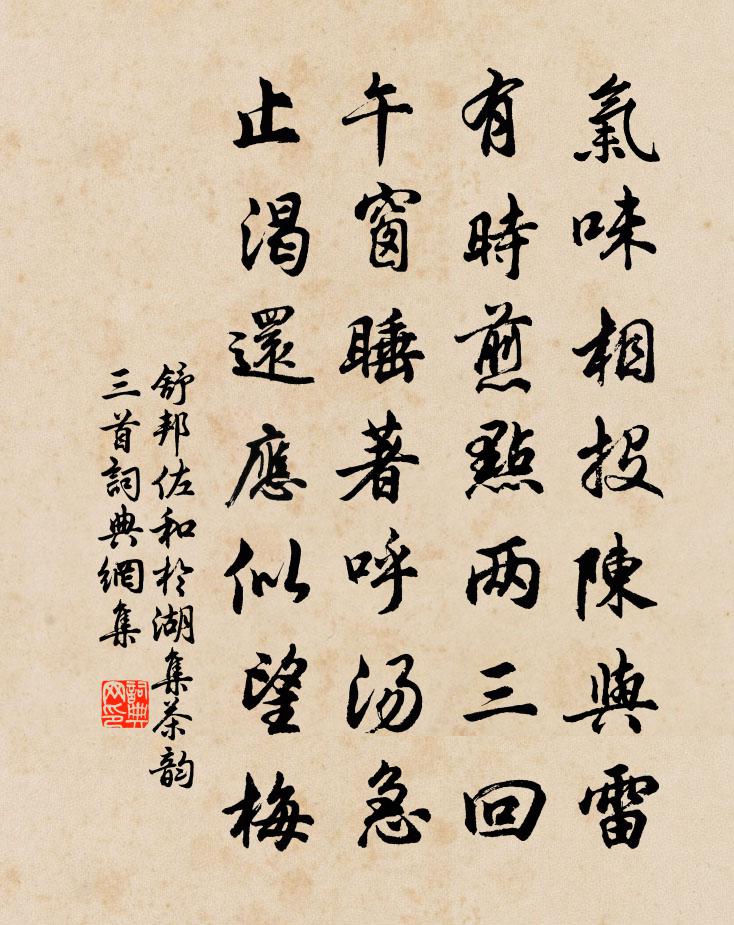 氣味相投陳與雷
有時煎點兩三回
午窗睡著呼湯急
止渴還應似望梅
舒邦佐和於湖集茶韵
三首詞典網集
詞典网印